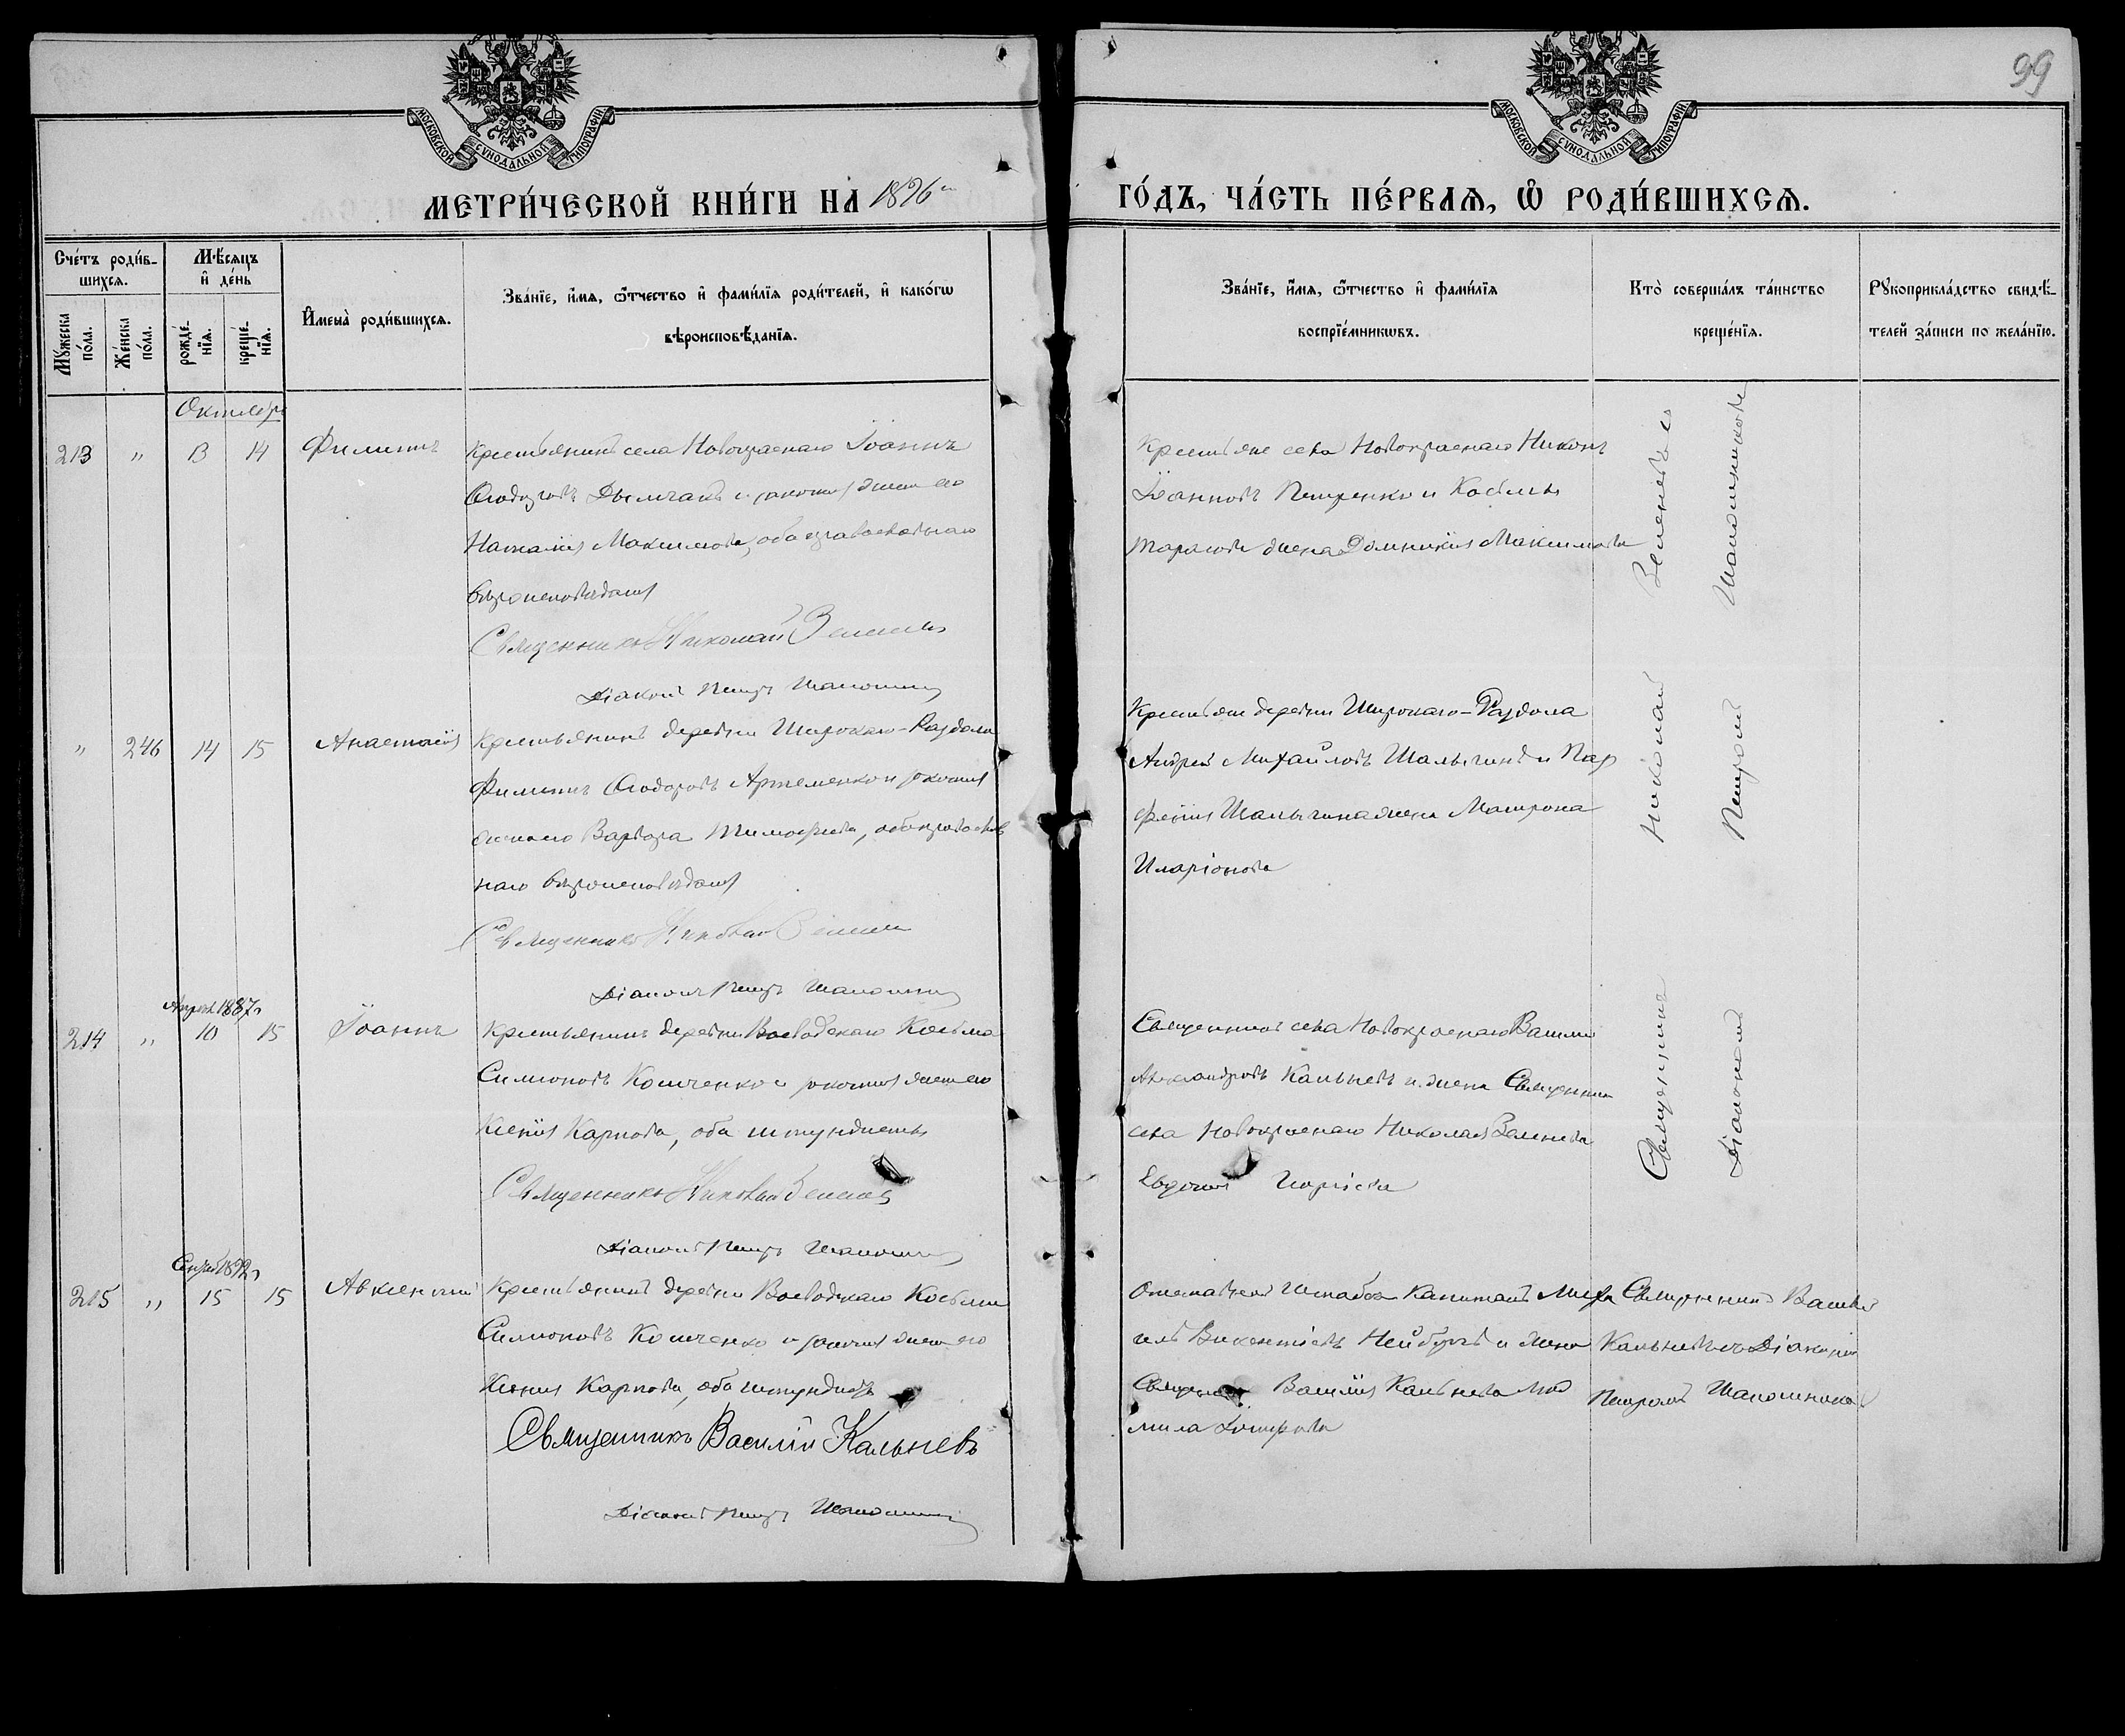 99
МОСКОВСКОЙ СѴНОДАЛЬНОЙ ТИПОГРАФІИ
МОСКОВСКОЙ СѴНОДАЛЬНОЙ ТИПОГРАФІИ
МЕТРИ́ЧЕСКОЙ КНИ́ГИ НА 1896
ГО́ДЪ, ЧА́СТЬ ПЕ́РВАѦ, Ѡ҆ РОДИ́ВШИХСѦ.
Сче́тъ роди́в-
шихсѧ.
Мꙋ́жеска
по́ла.
Же́нска
по́ла.
Мѣ́сѧцъ
и҆ де́нь
рожде́-
нїѧ.
креще́-
нїѧ.
И҆мена̀ роди́вшихсѧ.
Зва́нїе, и҆́мѧ, ѻ҆́тчество и҆ фами́лїѧ роди́телей, и҆ како́гѡ
вѣроисповѣ́данїѧ.
Зва́нїе, и҆́мѧ, ѻ҆́тчество и҆ фами́лїѧ
воспрїе́мникѡвъ.
Кто̀ соверша́лъ та́инство
креще́нїѧ.
Рꙋкоприкла́дство свидѣ́-
телей за́писи по жела́нїю.
Октябрь
213 " 13 14 Филиппъ
Крестьянинъ села Новокраснаго Іоаннъ
Ѳеодоровъ Дымчакъ и законная жена его
Наталія Максимова, оба православнаго
вѣроисповѣданія
Священникъ Николай Зеленевъ
Діаконъ Петръ Шапошник
Крестьяне села Новокраснаго Никонъ
Іоанновъ Петренко и Косьмы
Тарасова жена Домникія Максимова
" 246 14 15 Анастасія
Крестьянинъ деревни Широкаго-Раздола
Филиппъ Ѳеодоровъ Артеменко и законная
жена его Варвара Тимофеева, оба православ
наго вѣроисповѣданія
Священникъ Николай Зеленев
Діаконъ Петръ Шапошник
Крестьяне деревни Широкаго-Раздола
Андрей Михайловъ Шалыгинъ и Пар
фенія Шалыгина жена Матрона
Иларіонова
Апреля 1887 г.
214 " 10 15 Іоаннъ
Крестьянинъ деревни Воеводскаго Косьма
Симоновъ Комченко и законная жена его
Ксенія Карпова, оба штундисты
Священникъ Николай Зеленевъ
Діаконъ Петръ Шапошник
Священникъ села Новокраснаго Василій
Александровъ Кальневъ и жена Священника
села Новокраснаго Николая Зеленева
Священникъ Николай Зеленевъ съ
Діакономъ Петромъ Шапошниковымъ
Сентяб 1892 г
215 " 15 15 Авксентій
Крестьянинъ деревни Воеводскаго Косьма
Симоновъ Комченко и законная жена его
Ксенія Карпова, оба штундисты
Священникъ Василій Кальневъ
Діаконъ Петръ Шапошник
Отставной Штабсъ Капитанъ Миха
илъ Викентіевъ Нейбургъ и жена
Священника Василія Кальнева Люд
мила
Священникъ Василій
Кальневъ съ Діакономъ
Петромъ Шапошниковы